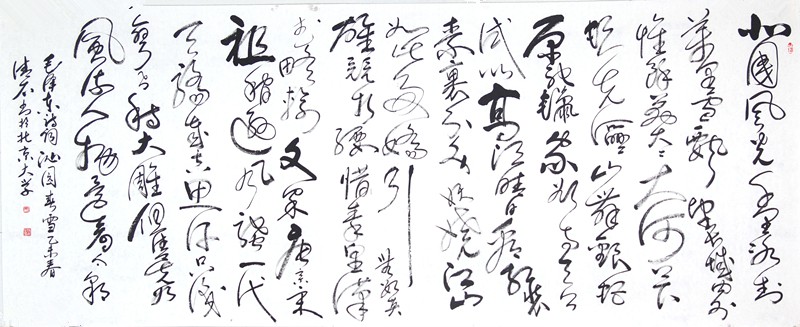 北國风光千里冰封
萬里雪飘望长城内外
惟餘莽莽大河上下
顿失滔滔山舞銀蛇
原驰蠟象欲与天公
试比高须晴日看红装
素裹分外妖娆江山
如此多娇引無数英
雄競折腰惜秦皇漢
武略输文采唐宗宋
祖稍逊风骚一代
天骄成吉思汗只识
弯弓射大雕俱往矣数
風流人物還看今朝
毛泽东诗词沁园春雪乙未春
书於北京大学